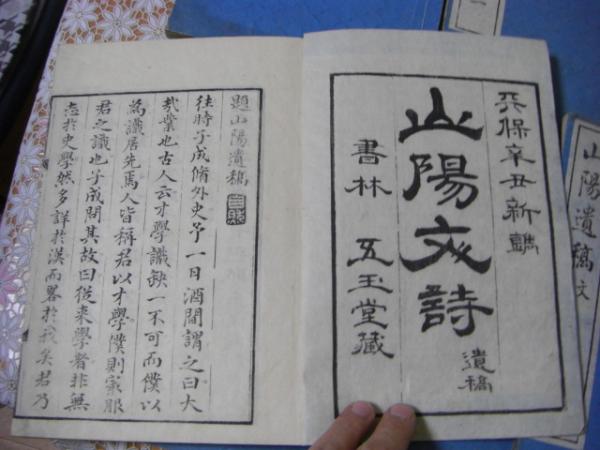 天保辛丑新鐫
山陽文詩
遺稿
書林 五玉堂藏
題山陽遺稿
往時子成脩外史予一日酒間謂之曰大
哉業也古人云才學識缺一不可而僕以
為識居先焉人皆稱君以才學僕則窃服
君之識也子成問其故曰従来學者非無
志於史學然多詳於漢而畧於我矣君乃
山陽遺稿 文